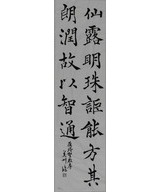 仙露明珠詎能方其
朗潤故以智通